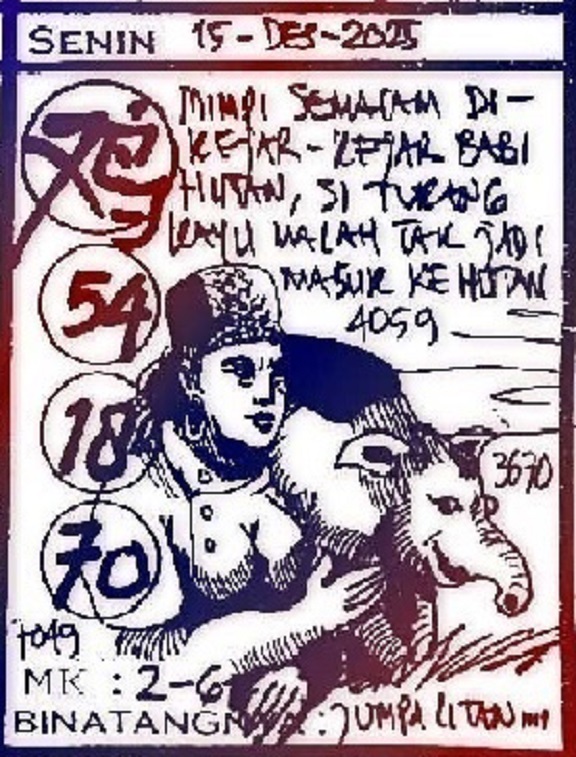 SENIN 15-DES-2025
MIMPI SEMALAM DI-
KEJAR-KEJAR BABI
HUTAN, SI TUKANG
KAYU MALAH TAK JADI
MASUK KE HUTAN
4059
54
18
3670
70
7049
MK : 2-6
BINATANGNYA : JUMPA